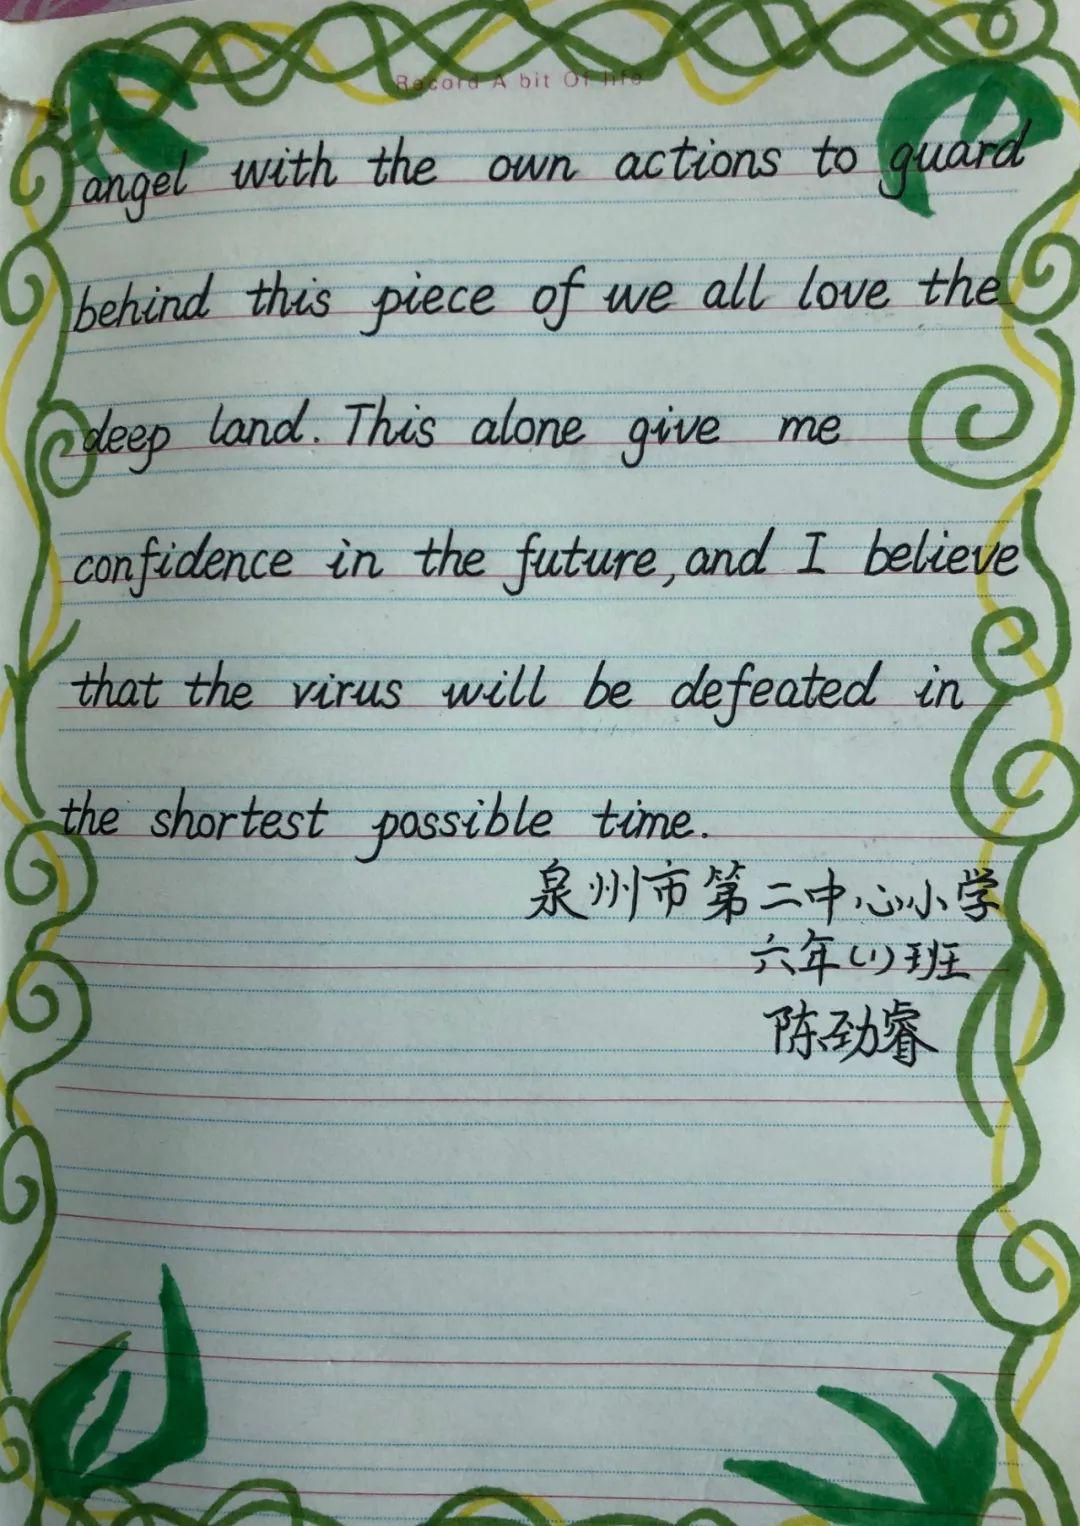 Record A bit Of life
angel with the own actions to guard
behind this piece of we all love the
deep land. This alone give me
confidence in the future, and I believe
that the virus will be defeated in
the shortest possible time.
泉州市第二中心小学
六年(1)班
陈劲睿